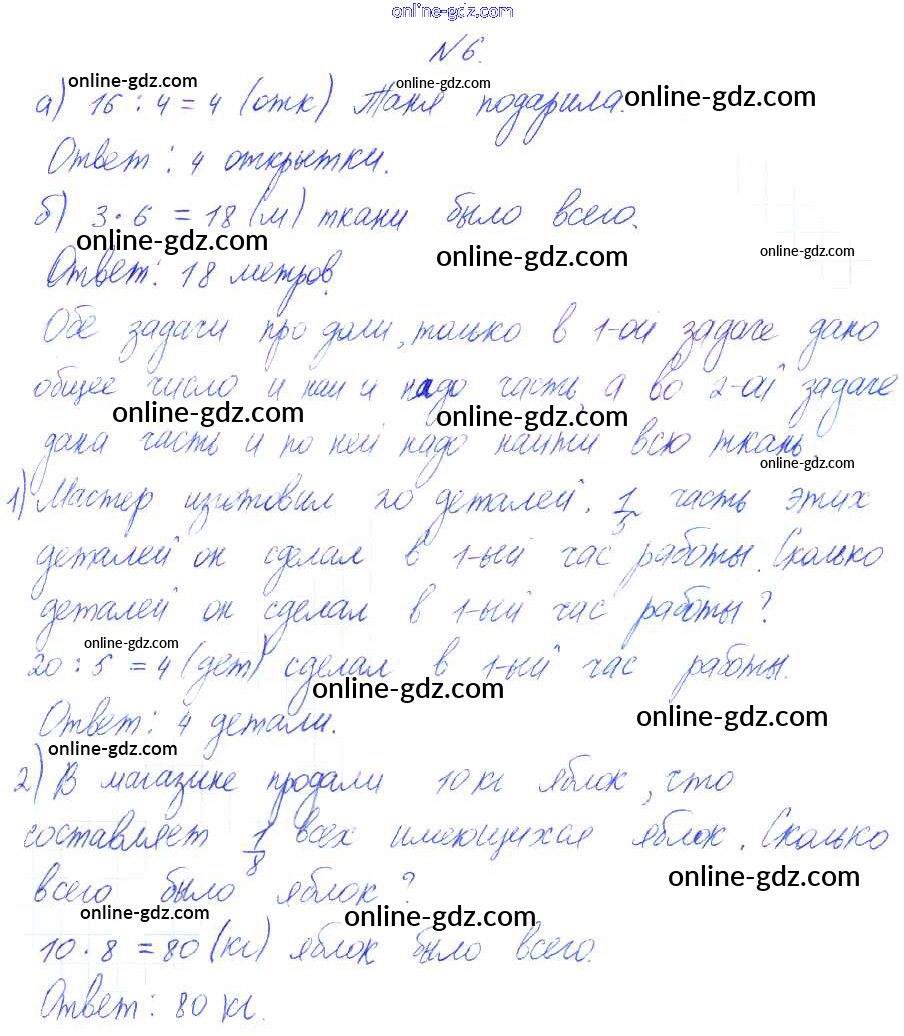 online-gdz.com
№ 6.
online-gdz.com online-gdz.com
а) 16 : 4 = 4 (отк) Таня подарила. online-gdz.com
Ответ: 4 открытки.
б) 3 · 6 = 18 (м) ткани было всего.
online-gdz.com online-gdz.com online-gdz.com
Ответ: 18 метров.
Обе задачи про доли, только в 1-ой задаче дано
общее число и надо часть, а во 2-ой задаче
online-gdz.com online-gdz.com
дана часть и по ней надо найти всю ткань.
online-gdz.com
1) Мастер изготовил 20 деталей. 1/5 часть этих
деталей он сделал в 1-ый час работы. Сколько
деталей он сделал в 1-ый час работы?
online-gdz.com
20 : 5 = 4 (дет) сделал в 1-ый час работы.
online-gdz.com
Ответ: 4 детали. online-gdz.com
online-gdz.com
2) В магазине продали 10 кг яблок, что
составляет 1/8 всех имеющихся яблок. Сколько
всего было яблок? online-gdz.com
online-gdz.com online-gdz.com
10 · 8 = 80 (кг) яблок было всего.
Ответ: 80 кг.